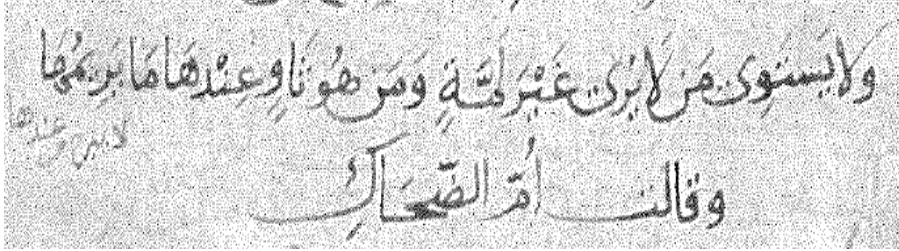 وَلَا يَسْتَوِي مَن لَا يُرَى غَيْرَ لَمَّةٍ وَمَن هُوَ ثَاوٍ عِنْدَهَا مَا يَرِيمُهَا
لا يبرح عندها
وقالت أُمّ الضَّحَّاكِ